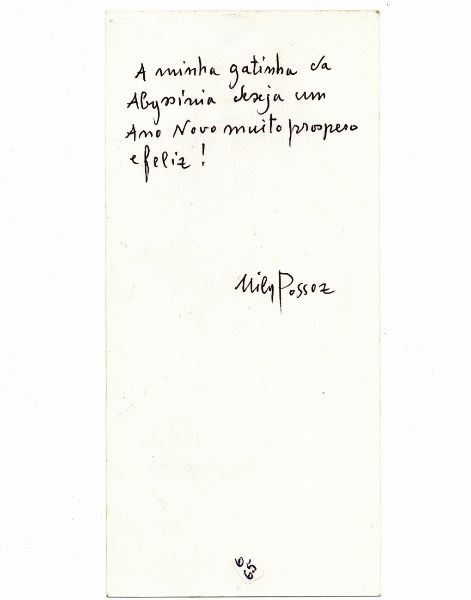 A minha gatinha da
Abyssinia deseja um
Ano Novo muito prospero
e feliz !
Mily Possoz
65